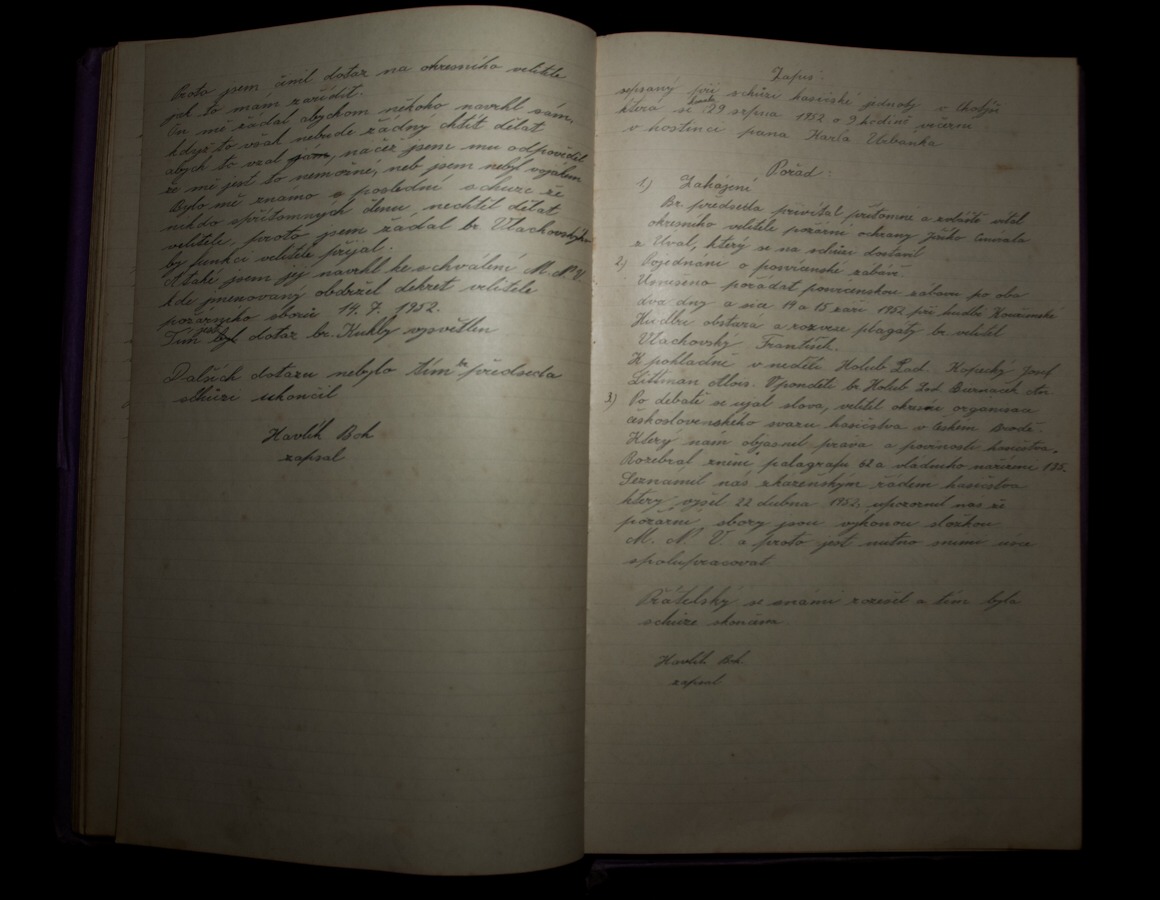 Proto jsem činil dotaz na okresního velitele
jak to mám zařídit.
On mě žádal abychom někoho navrhl sám,
když to však nebude žádný chtít dělat
abych to vzal jám, načež jsem mu odpověděl
že mě jest to nemožné, neb jsem nebyl vojákem
Bylo mě známo z poslední schůze že
nikdo spřítomných členu, nechtěl dělat
velitele, proto jsem žádal br. Vlachovského
by funkci velitele přijal.
A také jsem jej navrhl ke schválení M. N. V.
kde jmenovaný obdržel dekret velitele
požárního sboru 14. 7. 1952.
Tím byl dotaz br. Kukly vysvětlen
Dalších dotazu nebylo tím předseda
schůzi ukončil
Havlík Boh
zapsal
Zápis:
sepsaný při schůzi hasičské jednoty v
která se konala 29 srpna 1952 o 9 hodině večerní
v hostinci pana Karla Urbanka
Pořad:
1) Zahájení
Br. předseda přivítal přítomne a zvláště vítal
okresního velitele požární ochrany
z Úval, který se na schůzi dostavil
2) Pojednání o posvícenské zábavě.
Usneseno pořádat posvícenskou zábavu po oba
dva dny a sice 14 a 15 září 1952 při hudbě Kouřimské
Hudbu obstará a rozveze plagáty br. velitel
Vlachovský František.
K pokladně v neděli Holub Lad. Kopecký Josef
Littman Alois. V pondělí br Holub Lad. Ant.
3) Po debatě se ujal slova, velitel okresní organisace
československého svazu hasičstva v Českém Brodě.
Který nám objasnil práva a povinosti hasičstva.
Rozebral znění palagrafu 62 a vládního nařízení 135.
Seznámil nás řádem hasičstva
který vyšel 22 dubna 1952, upozornil nas že
požární sbory jsou výkonou složkou
M. N. V. a proto jest nutno snimi více
spolupracovat
Přátelský se snámi rozešel a tím byla
schůze skončena
Havlík Boh.
zapsal